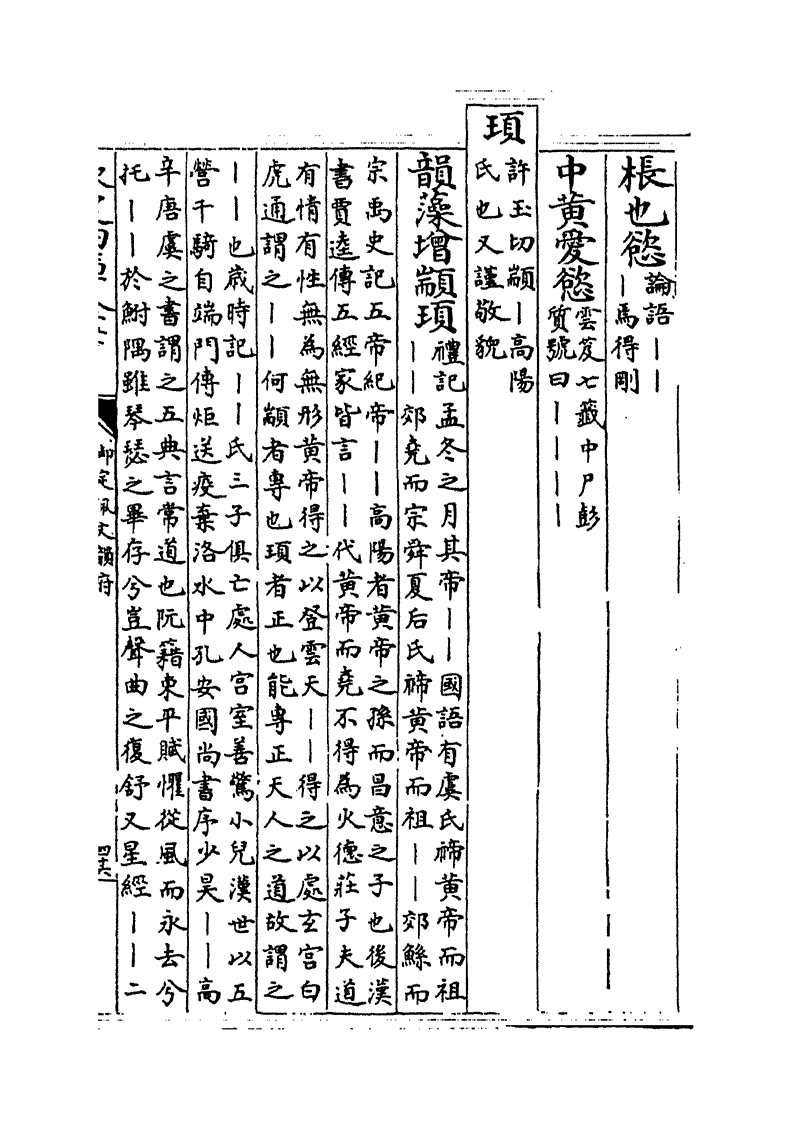 棖也慾論語丨丨
丨焉得剛
中黄愛慾雲笈七籤中尸彭
質號曰丨丨丨丨
頊許玉切顓丨高陽
氏也又謹敬貌
韻藻增顓頊禮記孟冬之月其帝丨丨國語有虞氏禘黄帝而祖
丨丨郊堯而宗舜夏后氏禘黄帝而祖丨丨郊鯀而
宗禹史記五帝紀帝丨丨高陽者黄帝之孫而昌意之子也後漢
書賈逵傳五經家皆言丨丨代黄帝而堯不得為火德莊子夫道
有情有性無為無形黄帝得之以登雲天丨丨得之以處玄宫白
虎通謂之丨丨何顓者專也頊者正也能專正天人之道故謂之
丨丨也歳時記丨丨氏三子俱亡處人宫室善驚小兒漢世以五
營千騎自端門傳炬送疫棄洛水中孔安國尚書序少昊丨丨高
辛唐虞之書謂之五典言常道也阮籍東平賦懼從風而永去兮
托丨丨於鮒隅雖琴瑟之畢存兮豈聲曲之復舒又星經丨丨二
御定佩文韻府